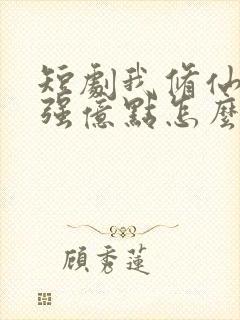 短劇我修仙
强億點怎麼
顧秀蓮